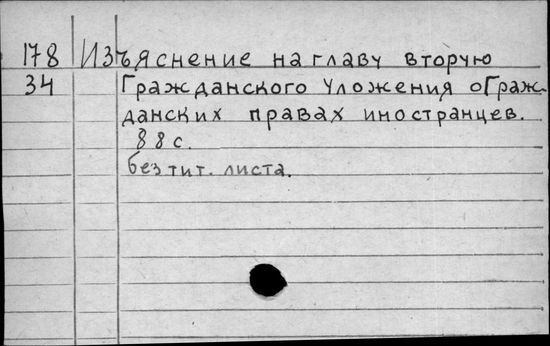 178 Изъяснение на главу вторую
34 Гражданского Уложения о Граж-
данских правах иностранцев.
88 с.
без тит. листа.